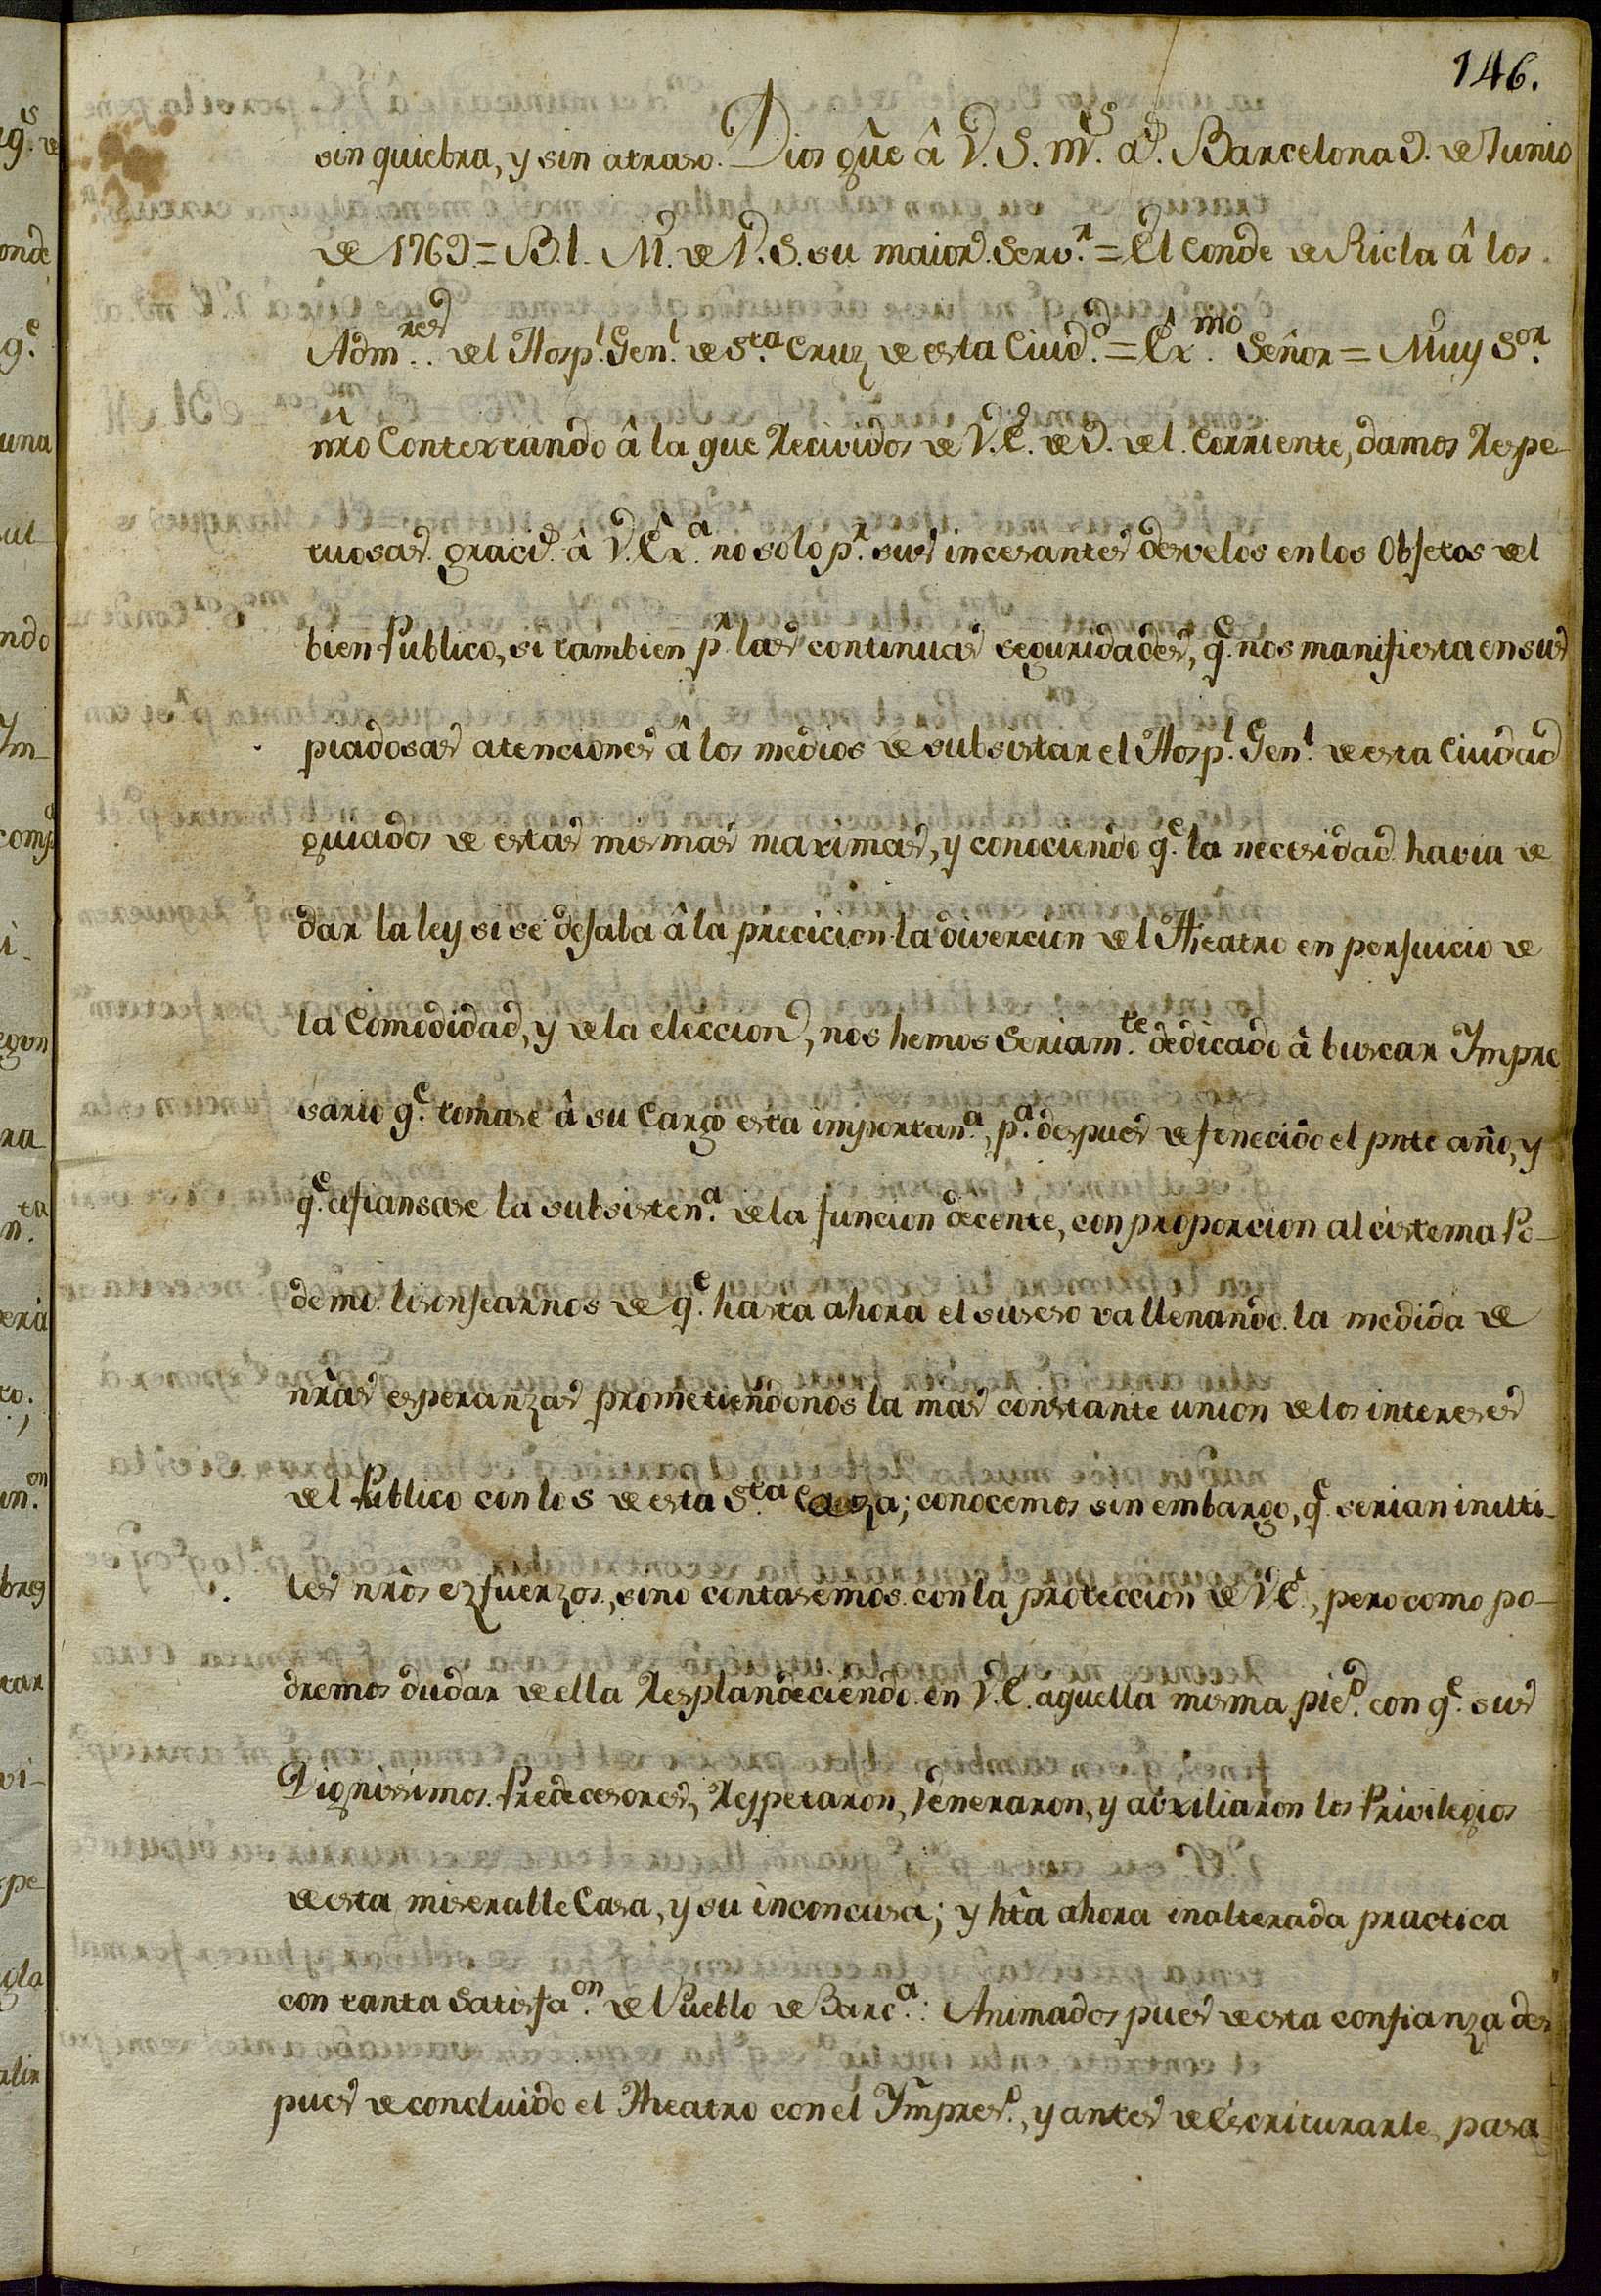 146.
sin quiebra, y sin atraso. Dios gûe â V. S. m.s a.s Barcelona 9. de Junio
de 1769 = B. l. M. de V. S. su maior Serv.r = El Conde de Ricla â los
Adm.res del Hosp.l Gen.l de S.ta Cruz de esta Ciud.d = Ex.mo Señor = Muy S.or
nrô Contextando â la que Recividos de V. E. de 9. del Corriente, damos Respe-
tuosas graci.s â V. Ex.a no sólo p.r sus incesantes desvelos en los Objetos del
bien Publico, si tambien p.r las continuas seguridades, q.e nos manifiesta en sus
piadosas atenciones â los medios de subsistar el Hosp.l Gen.l de esta Ciudad
guiados de estas mismas maximas, y conociendo q.e la necesidad havia de
dar la ley si se dejaba â la precicion la divercion del Theatro en perjuicio de
la Comodidad, y de la eleccion, nos hemos Seriam.te dedicado â buscar Impre
sario q.e tomase â su Cargo esta importan.a, p.a despues de fenecido el pnte año, y
q.e afiansase la subsisten.a de la funcion decente, con proporcion al cistema Po-
demo lisonjearnos de q.e hasta ahora el suseso va llenando la medida de
nrâs esperanzas prometiendonos la mas constante union de los intereses
del Publico con los de esta S.ta Caza; conocemos sin embargo, q.e serian inutti-
les nrôs ezfuerzos, sino contasemos con la proteccion de V E., pero como po-
dremos dudar de ella Resplandeciendo en V. E. aquella misma pie.d con q.e sus
Dignissimos Predecesores, Respetaron, Veneraron, y auxiliaron los Privilegios
de esta miseralle Casa, y su inconcusa; y htâ ahora inalterada practica
con tanta Satisfa.on del Pueblo de Barc.a: Animados pues de esta confianza des
pues de concluido el Theatro con el Impres.o, y antes de Escriturarle, pasa